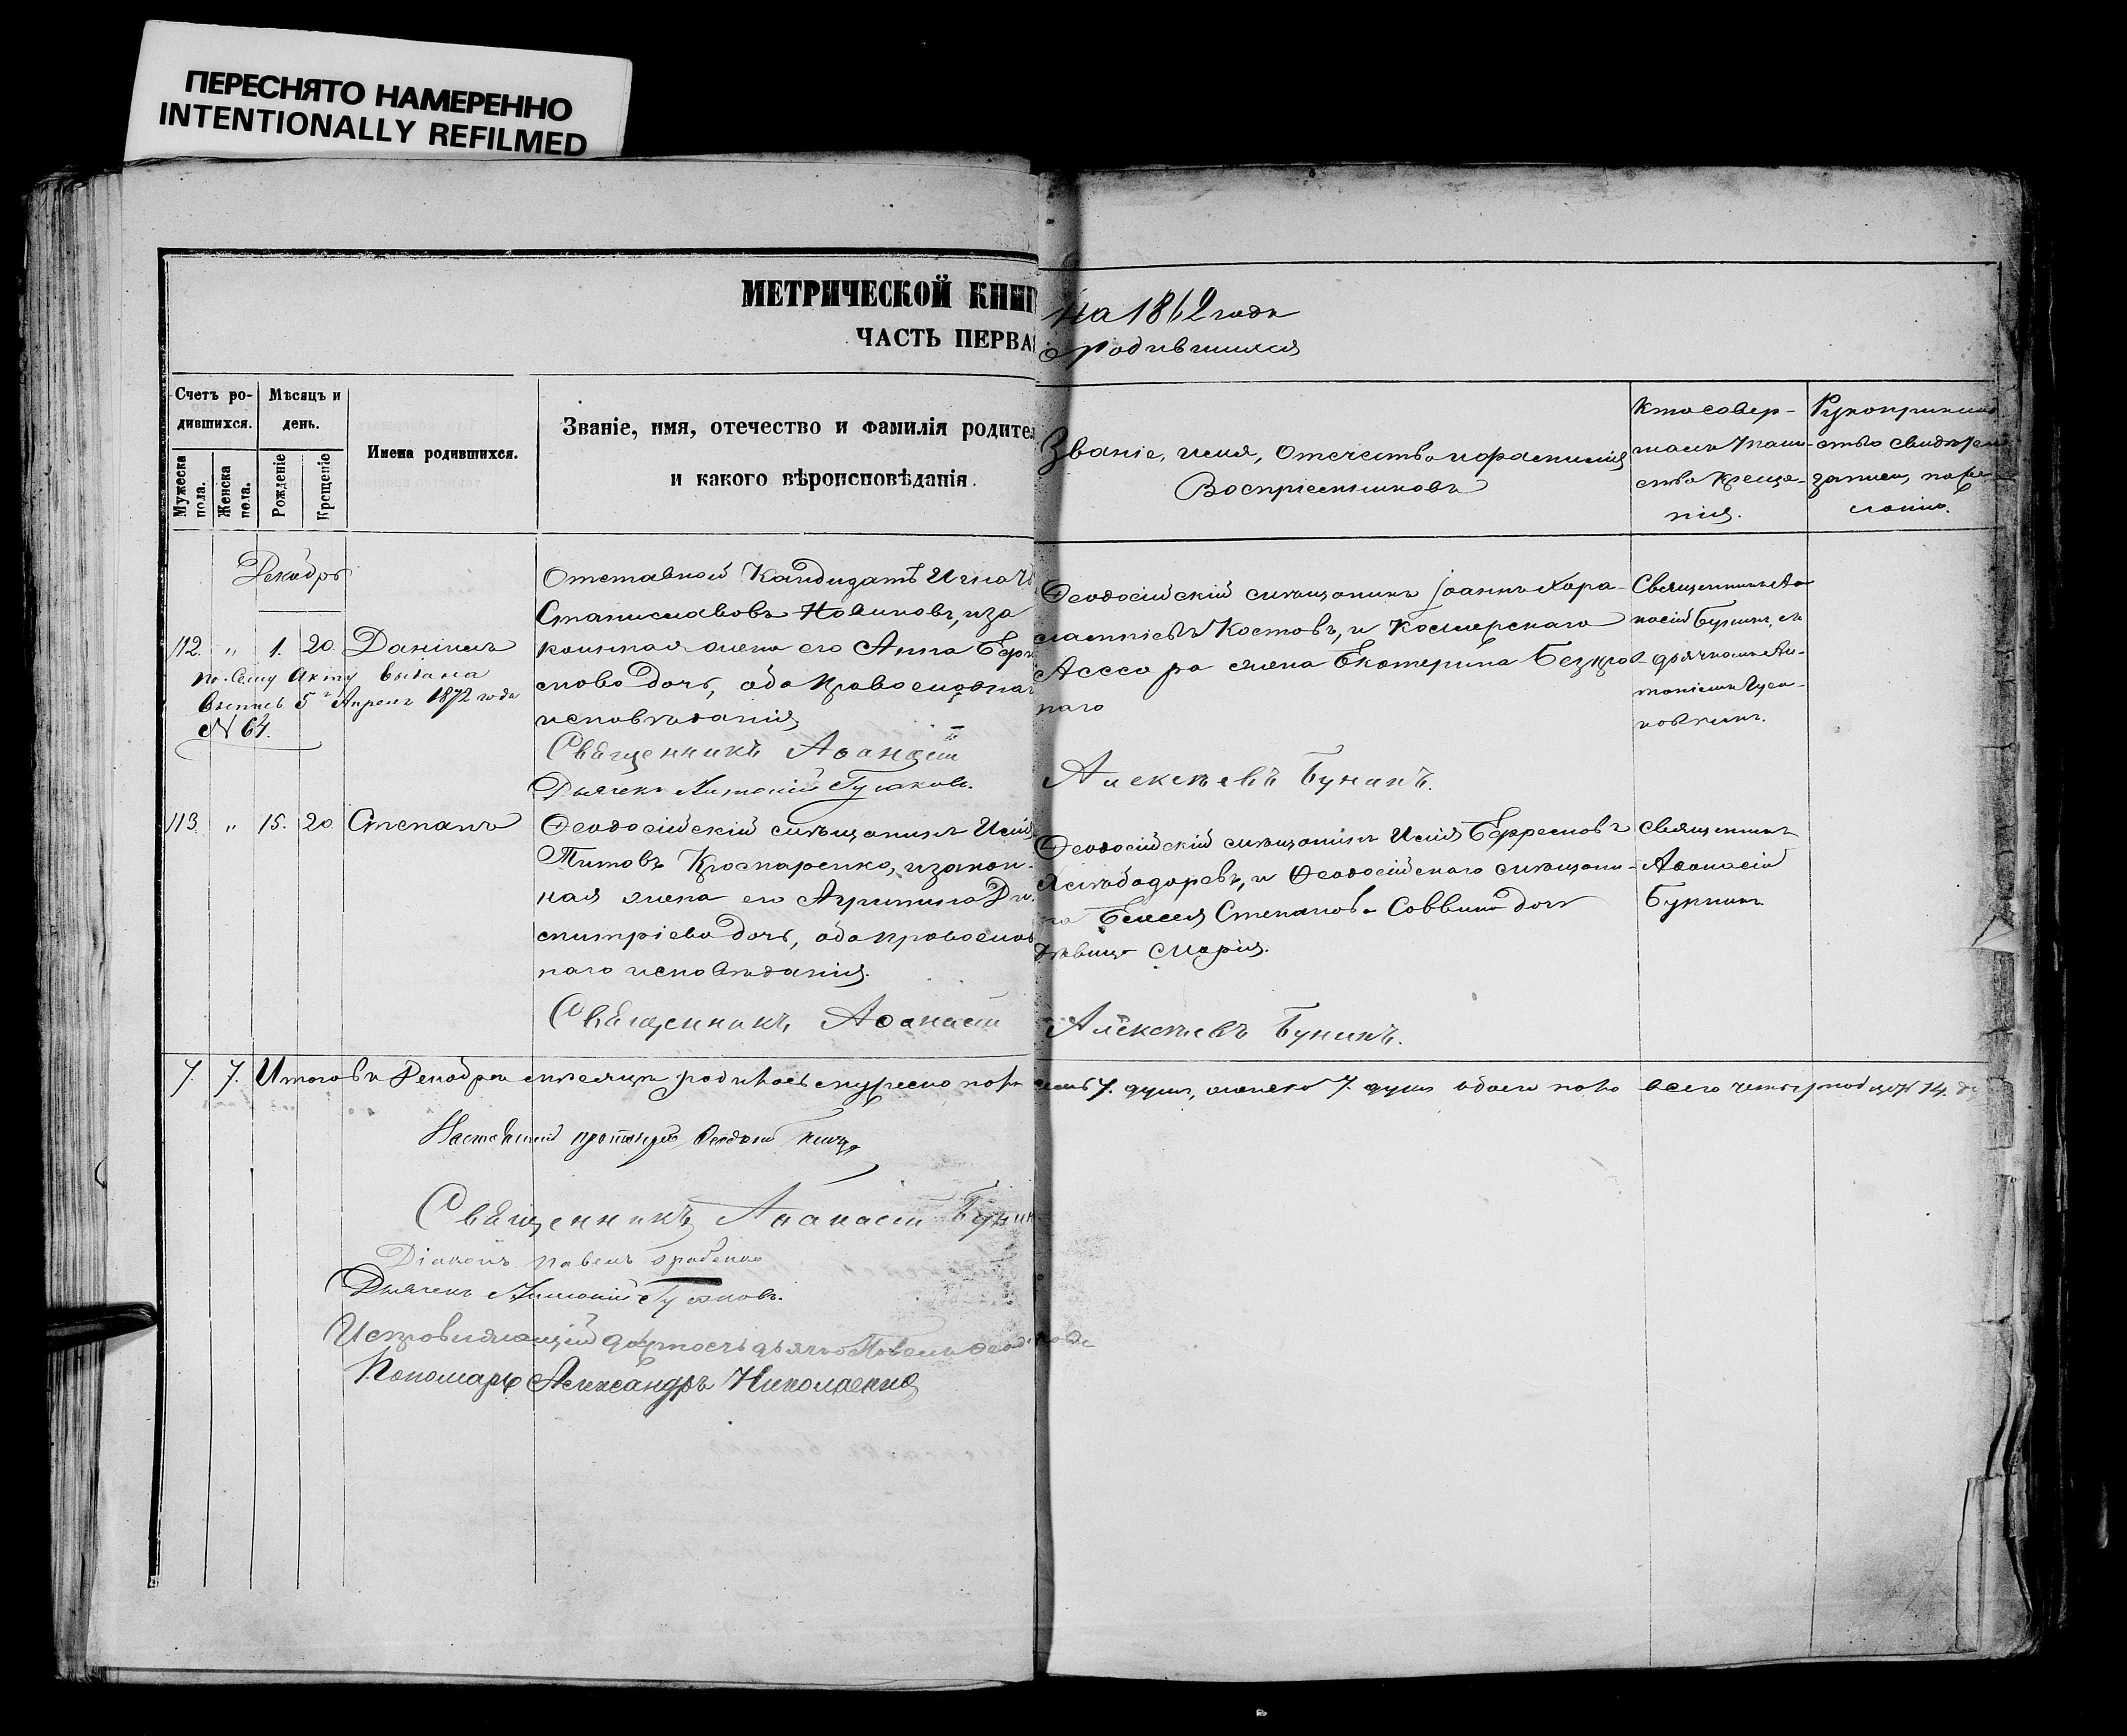 ПЕРЕСНЯТО НАМЕРЕННО
INTENTIONALLY REFILMED
МЕТРИЧЕСКОЙ КНИГ
на 1862 годъ
ЧАСТЬ ПЕРВАЯ
о родившихся
Счетъ ро-
дившихся.
Мужеска пола.
Женска пола.
Мѣсяцъ и
день.
Рожденіе
Крещеніе
Имена родившихся.
Званіе, имя, отечество и фамилія родител
и какого вѣроисповѣданія.
Званіе, имя, отечество и фамилія
Воспріемниковъ
Кто совер-
шалъ таин-
ство креще-
нія.
Рукоприклад
ство свидѣтелей
записи по же
ланію.
Декабрь
112. " 1. 20. Даніилъ
по сему акту выдана
выпись 5го Апреля 1872 года
№ 64.
Отставной Кандидатъ Игнатъ
Станиславовъ Новиковъ, и за
конная жена его Анна
дочь, оба православнаго
исповѣданія
Священникъ Аѳанасій
Дьячекъ Антоній Гусаковъ.
Ѳеодосійскій мѣщанинъ Іоаннъ Хара-
лампіевъ Костовъ, и Коллежскаго
Ассесора жена Екатерина Безкров-
наго
Алексѣевъ Бунинъ.
Священникъ Аѳа-
насій Бунинъ, съ
дьячкомъ Ан-
тоніемъ Гуса-
ковымъ.
113. " 15. 20. Степанъ
Ѳеодосійскій мѣщанинъ
Титовъ Кроспаренко, и закон-
ная жена его Агрипина Ди-
митріева дочь, оба православ
наго исповѣданія.
Священникъ Аѳанасій
Ѳеодосійскій мѣщанинъ Исидъ
и Ѳеодосійскаго мѣщани-
на Елисея Степанова Саввина дочь
дѣвица Марія.
Алексѣевъ Бунинъ.
Священникъ
Аѳанасій
Бунинъ
7. 7. Итого въ Декабрѣ мѣсяцѣ родилось мужеска пола семь 7. душъ, женска 7. душъ обоего пола всего четырнадцать 14. ду
Священникъ Аѳанасій Бунин
Діаконъ Павелъ
Дьячекъ Антоній Гусаковъ.
Исправляющій должность дьячка Павелъ
Пономарь Александръ Николаенко